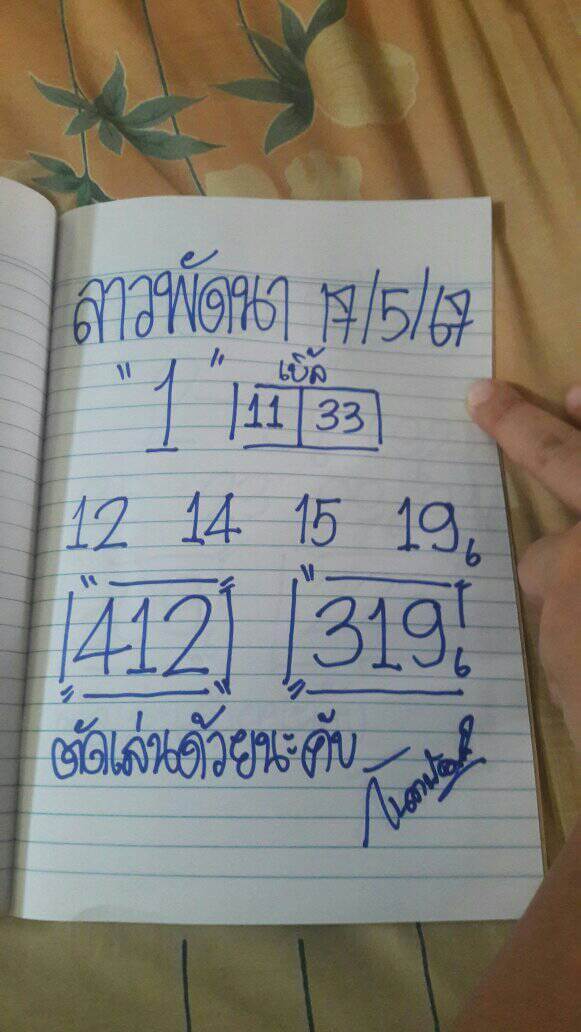 ลาวพัดนา 17/5/67
"1" เบิ้ล 11 33
12 14 15 19 6
"412" "319 6
ตัดเล่นด้วยนะคับ